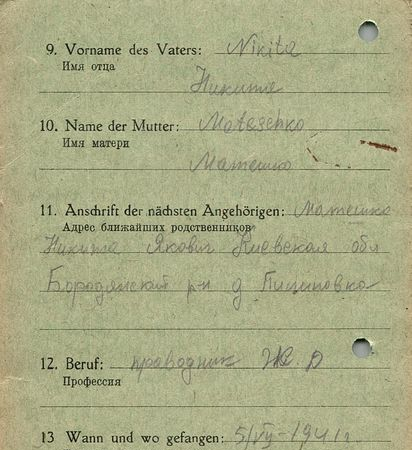 9. Vorname des Vaters: Nikita
Имя отца
Никита
10. Name der Mutter: Mateschko
Имя матери
Матешко
11. Anschrift der nächsten Angehörigen: Матешко
Адрес ближайших родственников
Никита Якович Киевская обл
Бородянский р-н д
12. Beruf: проводник Ж. Д
Профессия
13 Wann und wo gefangen: 5/VII-1941г.